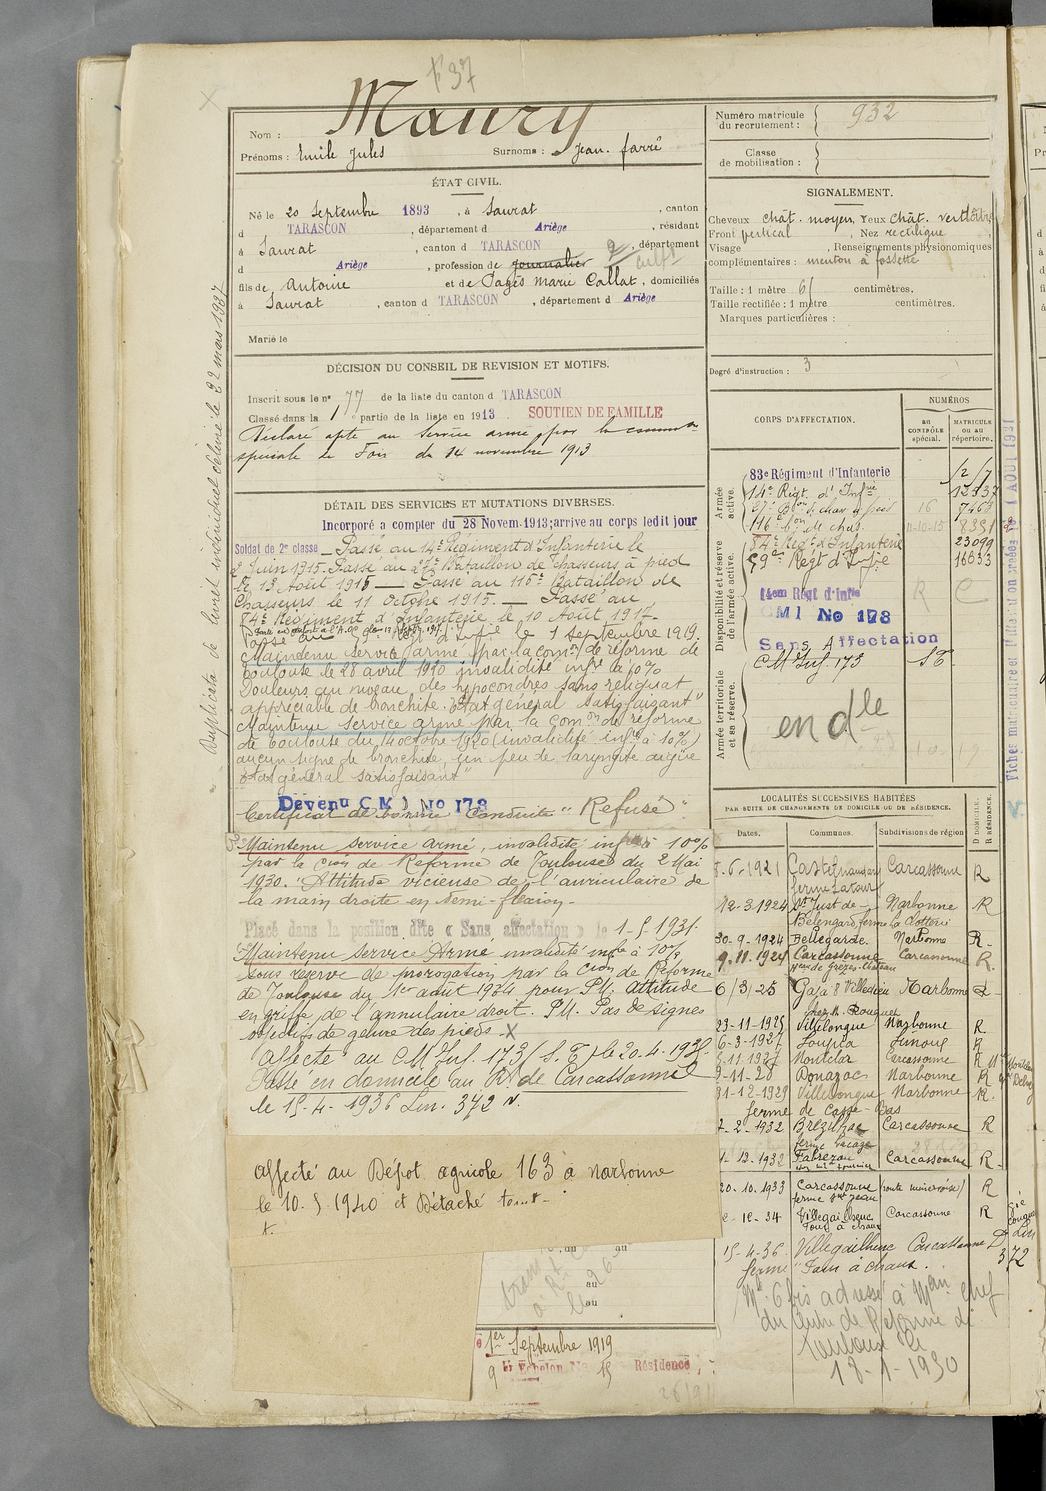 F 37
Nom : Maury
Prénoms : Emile Jules Surnoms : Jean. farré
ÉTAT CIVIL.
Né le 20 Septembre 1893, à Saurat, canton
d TARASCON, département d Ariège, résidant
à Saurat, canton d TARASCON, département
d Ariège, profession de journalier cultr
fils de Antoine et de Pagès Marie Callat, domiciliés
à Saurat, canton d TARASCON, département d Ariège
Marié le
DÉCISION DU CONSEIL DE REVISION ET MOTIFS.
Inscrit sous le n° 77 de la liste du canton d TARASCON
Classé dans la 1 partie de la liste en 1913. SOUTIEN DE FAMILLE
Déclaré apte au service armé par la comm on
spéciale de Foix du 14 novembre 1913
DÉTAIL DES SERVICES ET MUTATIONS DIVERSES.
Incorporé a compter du 28 Novem. 1913; arrive au corps ledit jour
Soldat de 2e classe _ Passé au 14e Régiment d'Infanterie le
2 Juin 1915. Passé au 27e Bataillon de chasseurs à pied
le 13 Août 1915 — Passé au 116e Bataillon de
Chasseurs le 11 Octobre 1915. — Passé au
84e Régiment d'Infanterie le 10 Août 1917
Passé au 59e d'Infie le 1 septembre 1919.
Maintenu service armé par la comon de réforme de
Toulouse le 28 avril 1920 invalidité infre à 10%
Douleurs au niveau des hypocondres sans reliquat
appréciable de bronchite. Etat général satisfaisant"
Maintenu service armé par la comon de réforme
de Toulouse du 14 octobre 1920 (invalidité infre à 10%)
aucun signe de bronchite, un peu de laryngite aigüe
Etat général satisfaisant"
Devenu C M I No 178
Certificat de bonne conduite "Refusé".
Maintenu service armé, invalidité infre à 10%
par la Cion de Réforme de Toulouse du 2 Mai
1930. "Attitude vicieuse de l'auriculaire de
la main droite en semi-flexion-
Placé dans la position dite « Sans affectation » le 1-5-1931.
Maintenu service Armé invalidité infre à 10%
sous réserve de prorogation par la Cion de Réforme
de Toulouse du 1er août 1934 pour P.M. attitude
en griffe de l'annulaire droit. P.M. Pas de signes
objectifs de gelure des pieds - X
Affecté au C M Inf. 173 (S. E) le 20.4.1935.
Passé en domicile au Rt de Carcassonne
le 15-4-1936 Lin. 372 N.
affecté au Dépot agricole 163 à Narbonne
le 10.5.1940 et Détaché
au
au
au
1er Septembre 1919
Echelon No 15 Résidence
Duplicata de livret individuel délivré le 22 mars 1937
Numéro matricule du recrutement : 932
Classe de mobilisation :
SIGNALEMENT.
Cheveux chât. moyen, Yeux chât. verdâtre
Front vertical, Nez rectiligne
Visage, Renseignements physionomiques
complémentaires : menton à fossette
Taille : 1 mètre 61 centimètres.
Taille rectifiée : 1 mètre centimètres.
Marques particulières :
Degré d'instruction : 3
CORPS D'AFFECTATION.
NUMÉROS
au CONTRÔLE spécial.
MATRICULE ou au répertoire.
Armée active.
83e Régiment d'Infanterie
14e Régt d'Infrie 12337
27e Bon de chass à pied 16 7468
116e bon de chas. 11-10-15 8331
84e Régt d'Infanterie 23099
Disponibilité et réserve de l'armée active.
59e Régt d'Infie 16633
14em Régt d'Infie R C
C M I No 178
Sans Affectation
C M Inf. 173 S E
Armée territoriale et sa réserve.
en dle
Fiches matriculaires et
LOCALITÉS SUCCESSIVES HABITÉES
PAR SUITE DE CHANGEMENTS DE DOMICILE OU DE RÉSIDENCE.
Dates. Communes. Subdivisions de région D DOMICILE. R RÉSIDENCE.
5-6-1921 Castelnaudary Carcassonne R
ferme Latour
12-3-1924 St Just de Narbonne R
Belengard ferme la Clotterie
30-9-1924 Bellegarde Narbonne R
9.11.1924 Carcassonne Carcassonne R.
6/3/25 Gaja & Villedieu Narbonne R
chez M. Rouquet
23-11-1925 Villelongue Narbonne R.
6-3-1927 Loupia Limoux R
5.11.1927 Montclar Carcassonne R
2-11-28 Donazac Narbonne R
31-12-1929 Villelongue Narbonne R.
ferme de Casse-Bas
2-2-1932 Brézilhac Carcassonne R
1-12-1932 Fabrezan Carcassonne R
20-10-1933 Carcassonne (route minervoise) R
ferme St Jean
Villegailhenc Carcassonne R
Four à chaux
15-4-36. Villegailhenc Carcassonne D Lin
ferme "Four à chaux. 372
Mle 6 bis adressé à Mon chef
du Centre de Réforme de
Toulouse le
18-1-1930